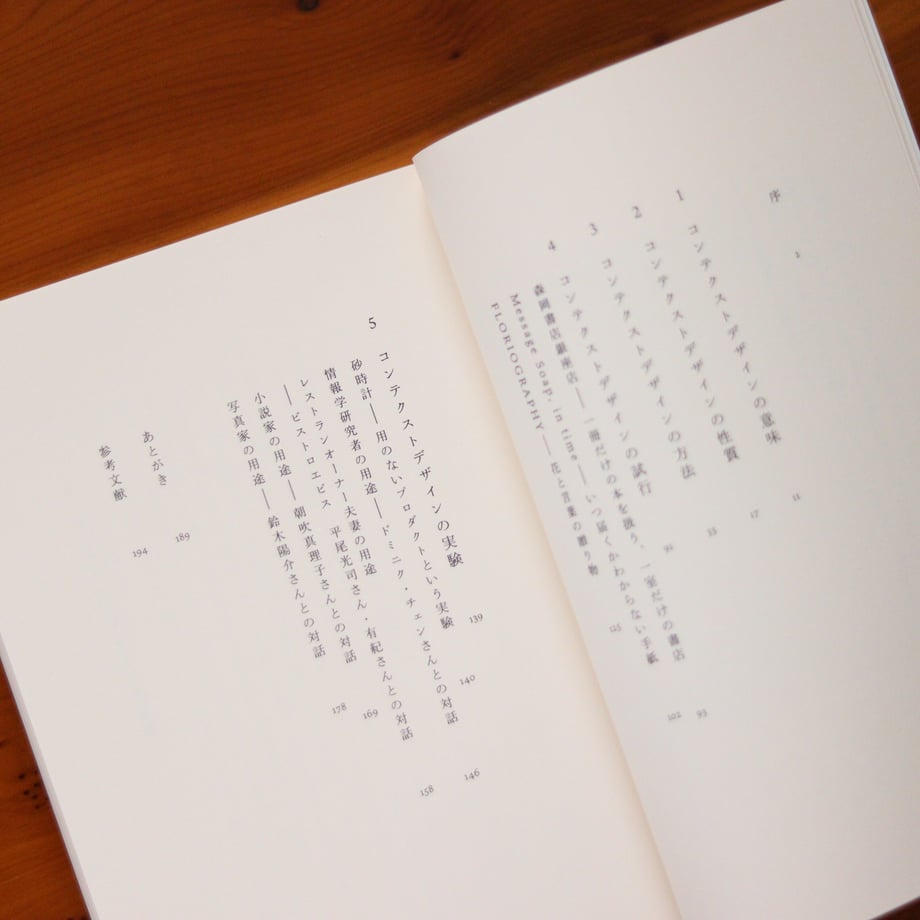 序
1 コンテクストデザインの意味 11
2 コンテクストデザインの性質 17
3 コンテクストデザインの方法
4 コンテクストデザインの試行
森岡書店銀座店――一冊だけの本を扱う、一室だけの書店 93
Message Soap, in time――いつ届くかわからない手紙 102
FLORIOGRAPHY――花と言葉の贈り物
5 コンテクストデザインの実験 139
砂時計――用のないプロダクトという実験 140
情報学研究者の用途――ドミニク・チェンさんとの対話 146
レストランオーナー夫妻の用途
――ビストロエビス 平尾光司さん・有紀さんとの対話 158
小説家の用途――朝吹真理子さんとの対話 169
写真家の用途――鈴木陽介さんとの対話 178
あとがき 189
参考文献 194